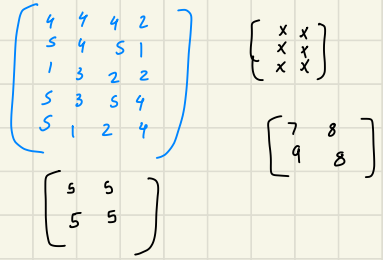 4 4 4 2
5 4 5 1
1 3 2 2
5 3 5 4
5 1 2 4
x x
x x
x x
7 8
9 8
5 5
5 5